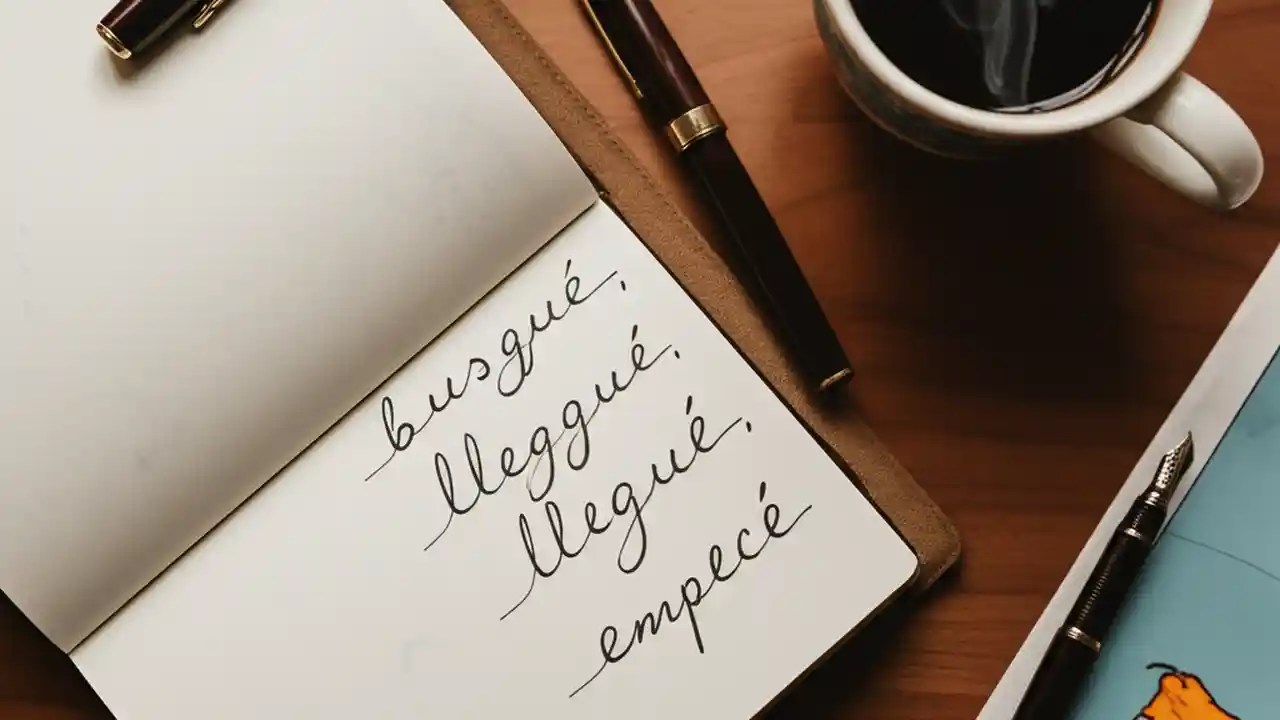 busgué,
lleggué,
llegué,
empecé